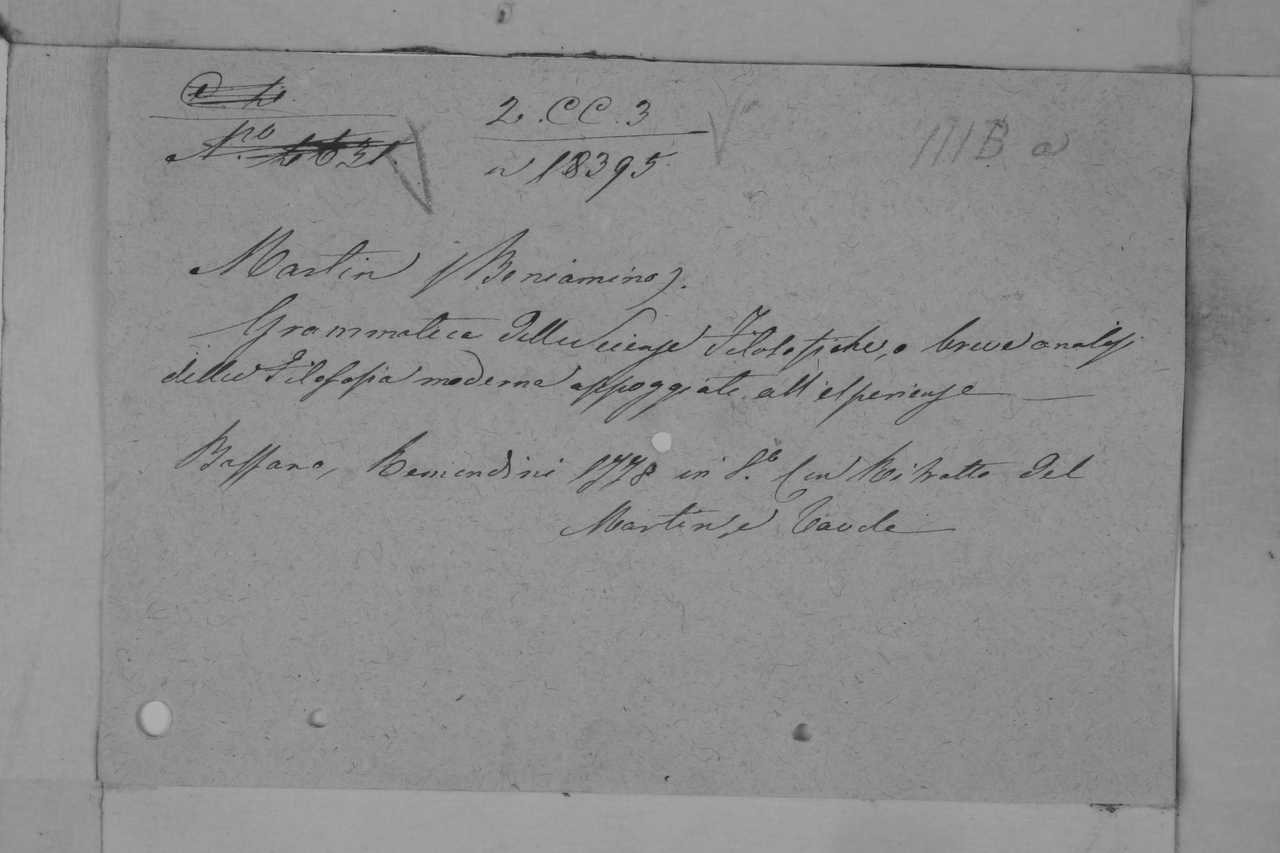 2.CC.3
a 18395.
IIIB a
Martin (Beniamino).
Grammatica delle Scienze Filosofiche, o breve analisi
della Filosofia moderna appoggiata all'esperienze
Bassano, Remondini 1778 in 8.º Con Ritratto del
Martin, e Tavole